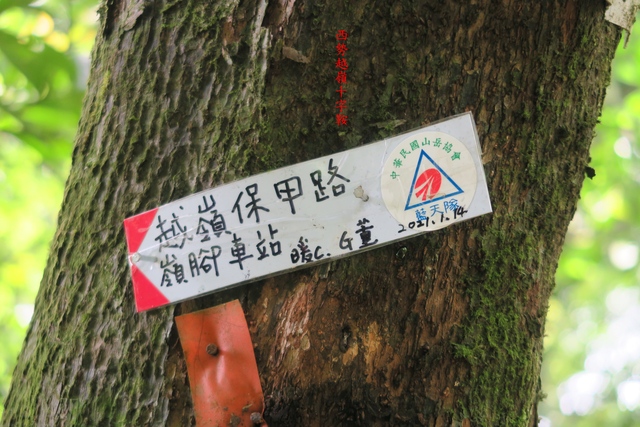 西勢越嶺十字鞍
越嶺保甲路
嶺腳車站 暖C. G薰
中華民國山岳協會
藍天隊
2021.7.14